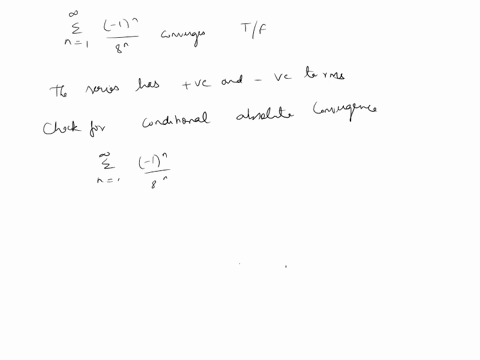 ∞
Σ (-1)^n / 8^n converges T/F
n=1
The series has +ve and -ve terms
Check for conditional absolute convergence
∞
Σ (-1)^n / 8^n
n=1